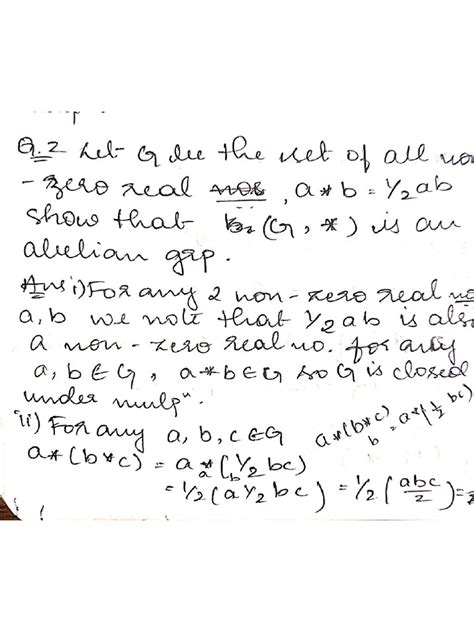 Q.2 Let G be the set of all non
-zero real nos., a*b = 1/2ab
show that (G, *) is an
abelian grp.
Ans i) For any 2 non-zero real no
a, b we note that 1/2 ab is also
a non-zero real no. for any
a, b ∈ G, a*b ∈ G so G is closed
under mulpⁿ.
ii) For any a, b, c ∈ G a*(b*c) = a*(1/2 bc)
a*(b*c) = a*(1/2 bc)
= 1/2(a 1/2 bc) = 1/2(abc/2) =